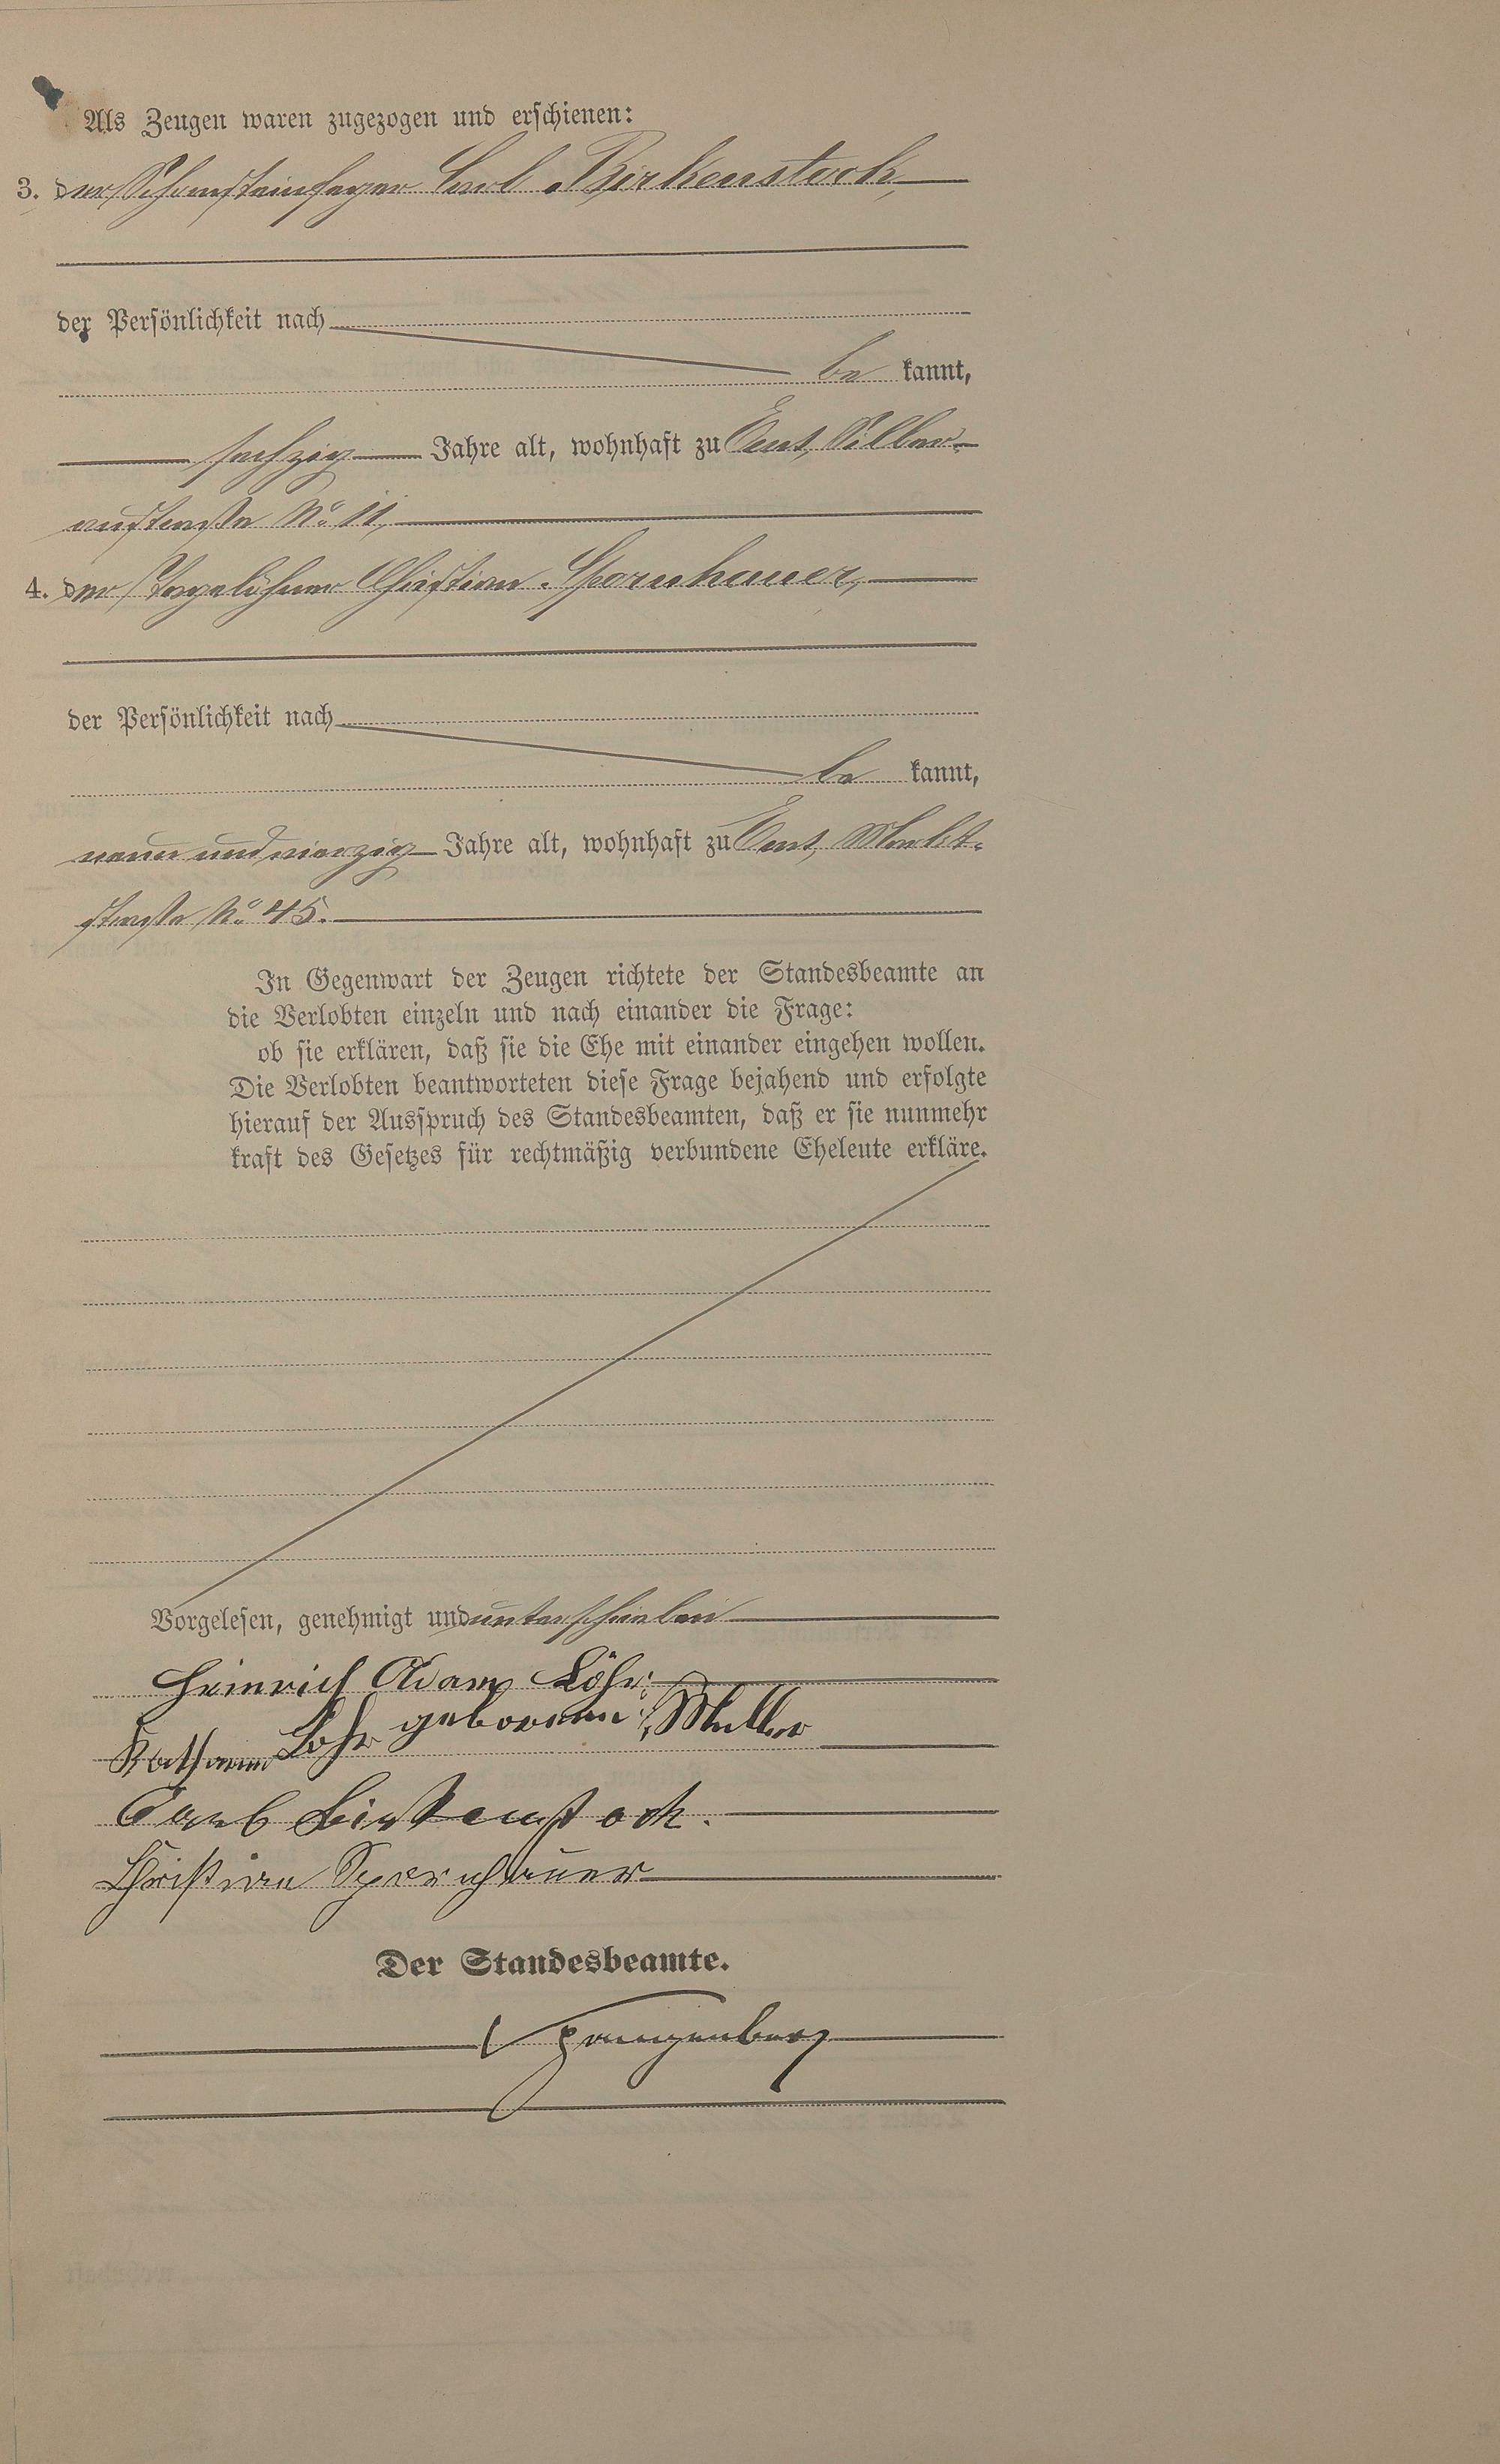 Als Zeugen waren zugezogen und erschienen:
3. der Schornsteinfeger Carl Birkenstock,
der Persönlichkeit nach
be kannt,
sechzig Jahre alt, wohnhaft zu Ems, Silber-
austraße No. 11,
4. der Tagelöhner Christian Spornhauer,
der Persönlichkeit nach
be kannt,
neun und vierzig Jahre alt, wohnhaft zu Ems, Markt-
straße No. 45.
In Gegenwart der Zeugen richtete der Standesbeamte an
die Verlobten einzeln und nach einander die Frage:
ob sie erklären, daß sie die Ehe mit einander eingehen wollen.
Die Verlobten beantworteten diese Frage bejahend und erfolgte
hierauf der Ausspruch des Standesbeamten, daß er sie nunmehr
kraft des Gesetzes für rechtmäßig verbundene Eheleute erkläre.
Vorgelesen, genehmigt und unterschrieben
Heinrich Adam Löhr
Löhr geborene Müller
Carl Birkenstock.
Christian Spornhauer
Der Standesbeamte.
Spangenberg